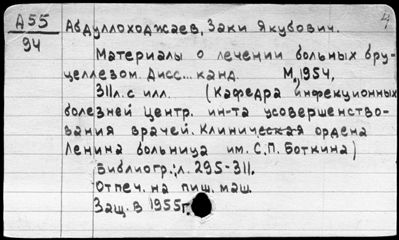 А55
94
4
Абдуллоходжаев, Заки Якубович.
Материалы о лечении больных бру-
целлезом. Дисс... канд. М., 1954,
311л. с илл. (Кафедра инфекционных
болезней Центр. ин-та усовершенство-
вания врачей. Клиническая ордена
Ленина больница им. С.П. Боткина)
Библиогр.: л. 295-311.
Отпеч. на пиш. маш.
Защ. в 1955г.